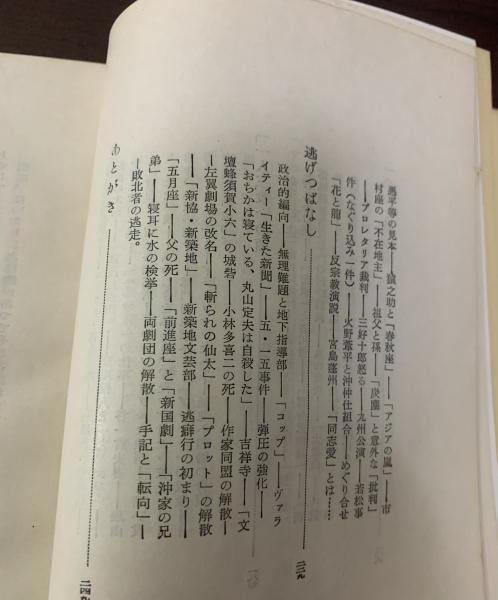 悪平等の見本——猿之助と「春秋座」——「アジアの嵐」——市
村座の「不在地主」——祖父と孫——「炭塵」と意外な「批判」
——プロレタリア裁判——三好十郎怒る——九州公演——若松事
件（なぐり込み一件）——火野葦平と沖仲仕組合——めぐり合せ
「花と龍」——反宗教演説——宮島蓬州——「同志愛」とは……
逃げつばなし……………………二三九
政治的編向——無理難題と地下指導部——「コップ」——ヴァラ
イティー「生きた新聞」——五・一五事件——弾圧の強化——
「おちかは寝ている、丸山定夫は自殺した」——吉祥寺——「文
壇蜂須賀小六」の城砦——小林多喜二の死——作家同盟の解散—
—左翼劇場の改名——「斬られの仙太」——「プロット」の解散
——「新協・新築地」——新築地文芸部——逃癖行の初まり——
「五月座」——父の死——「前進座」と「新国劇」——「沖家の兄
弟」——寝耳に水の検挙——両劇団の解散——手記と「転向」—
—敗北者の逃走。
あとがき……………………二四